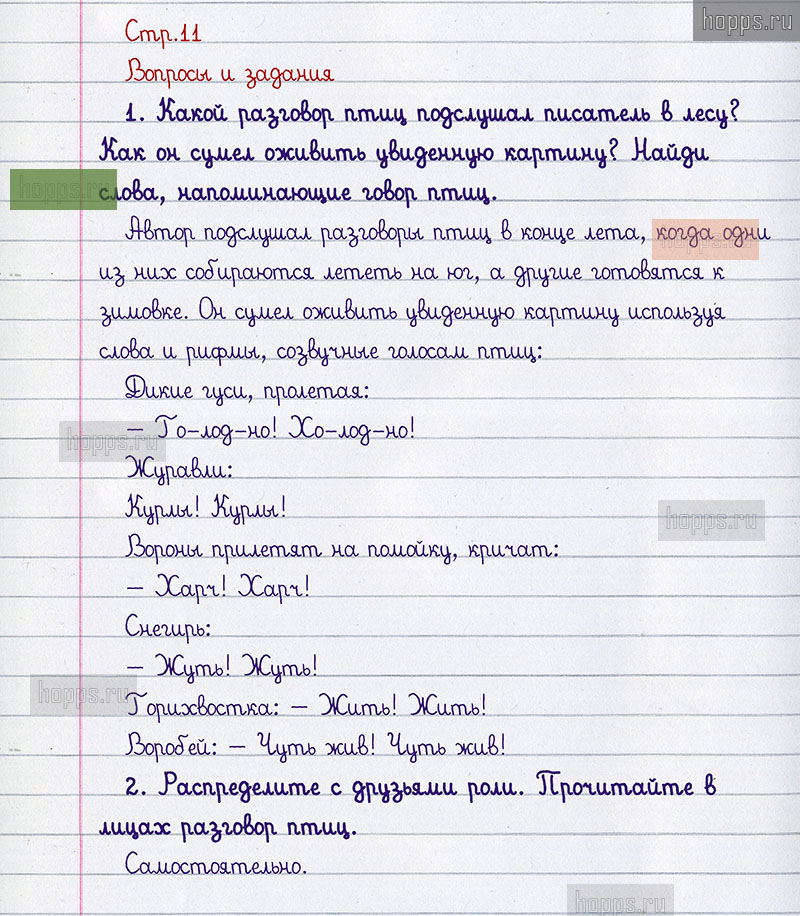 hopps.ru
Стр.11
Вопросы и задания
1. Какой разговор птиц подслушал писатель в лесу?
Как он сумел оживить увиденную картину? Найди
hopps.ru
слова, напоминающие говор птиц.
Автор подслушал разговоры птиц в конце лета, когда одни
hopps.ru
из них собираются лететь на юг, а другие готовятся к
зимовке. Он сумел оживить увиденную картину используя
слова и рифмы, созвучные голосам птиц:
Дикие гуси, пролетая:
– Го-лод-но! Хо-лод-но!
hopps.ru
Журавли:
Курлы! Курлы!
hopps.ru
Вороны прилетят на помойку, кричат:
– Харч! Харч!
Снегирь:
– Жуть! Жуть!
hopps.ru
Горихвостка: – Жить! Жить!
Воробей: – Чуть жив! Чуть жив!
2. Распределите с друзьями роли. Прочитайте в
лицах разговор птиц.
Самостоятельно.
hopps.ru